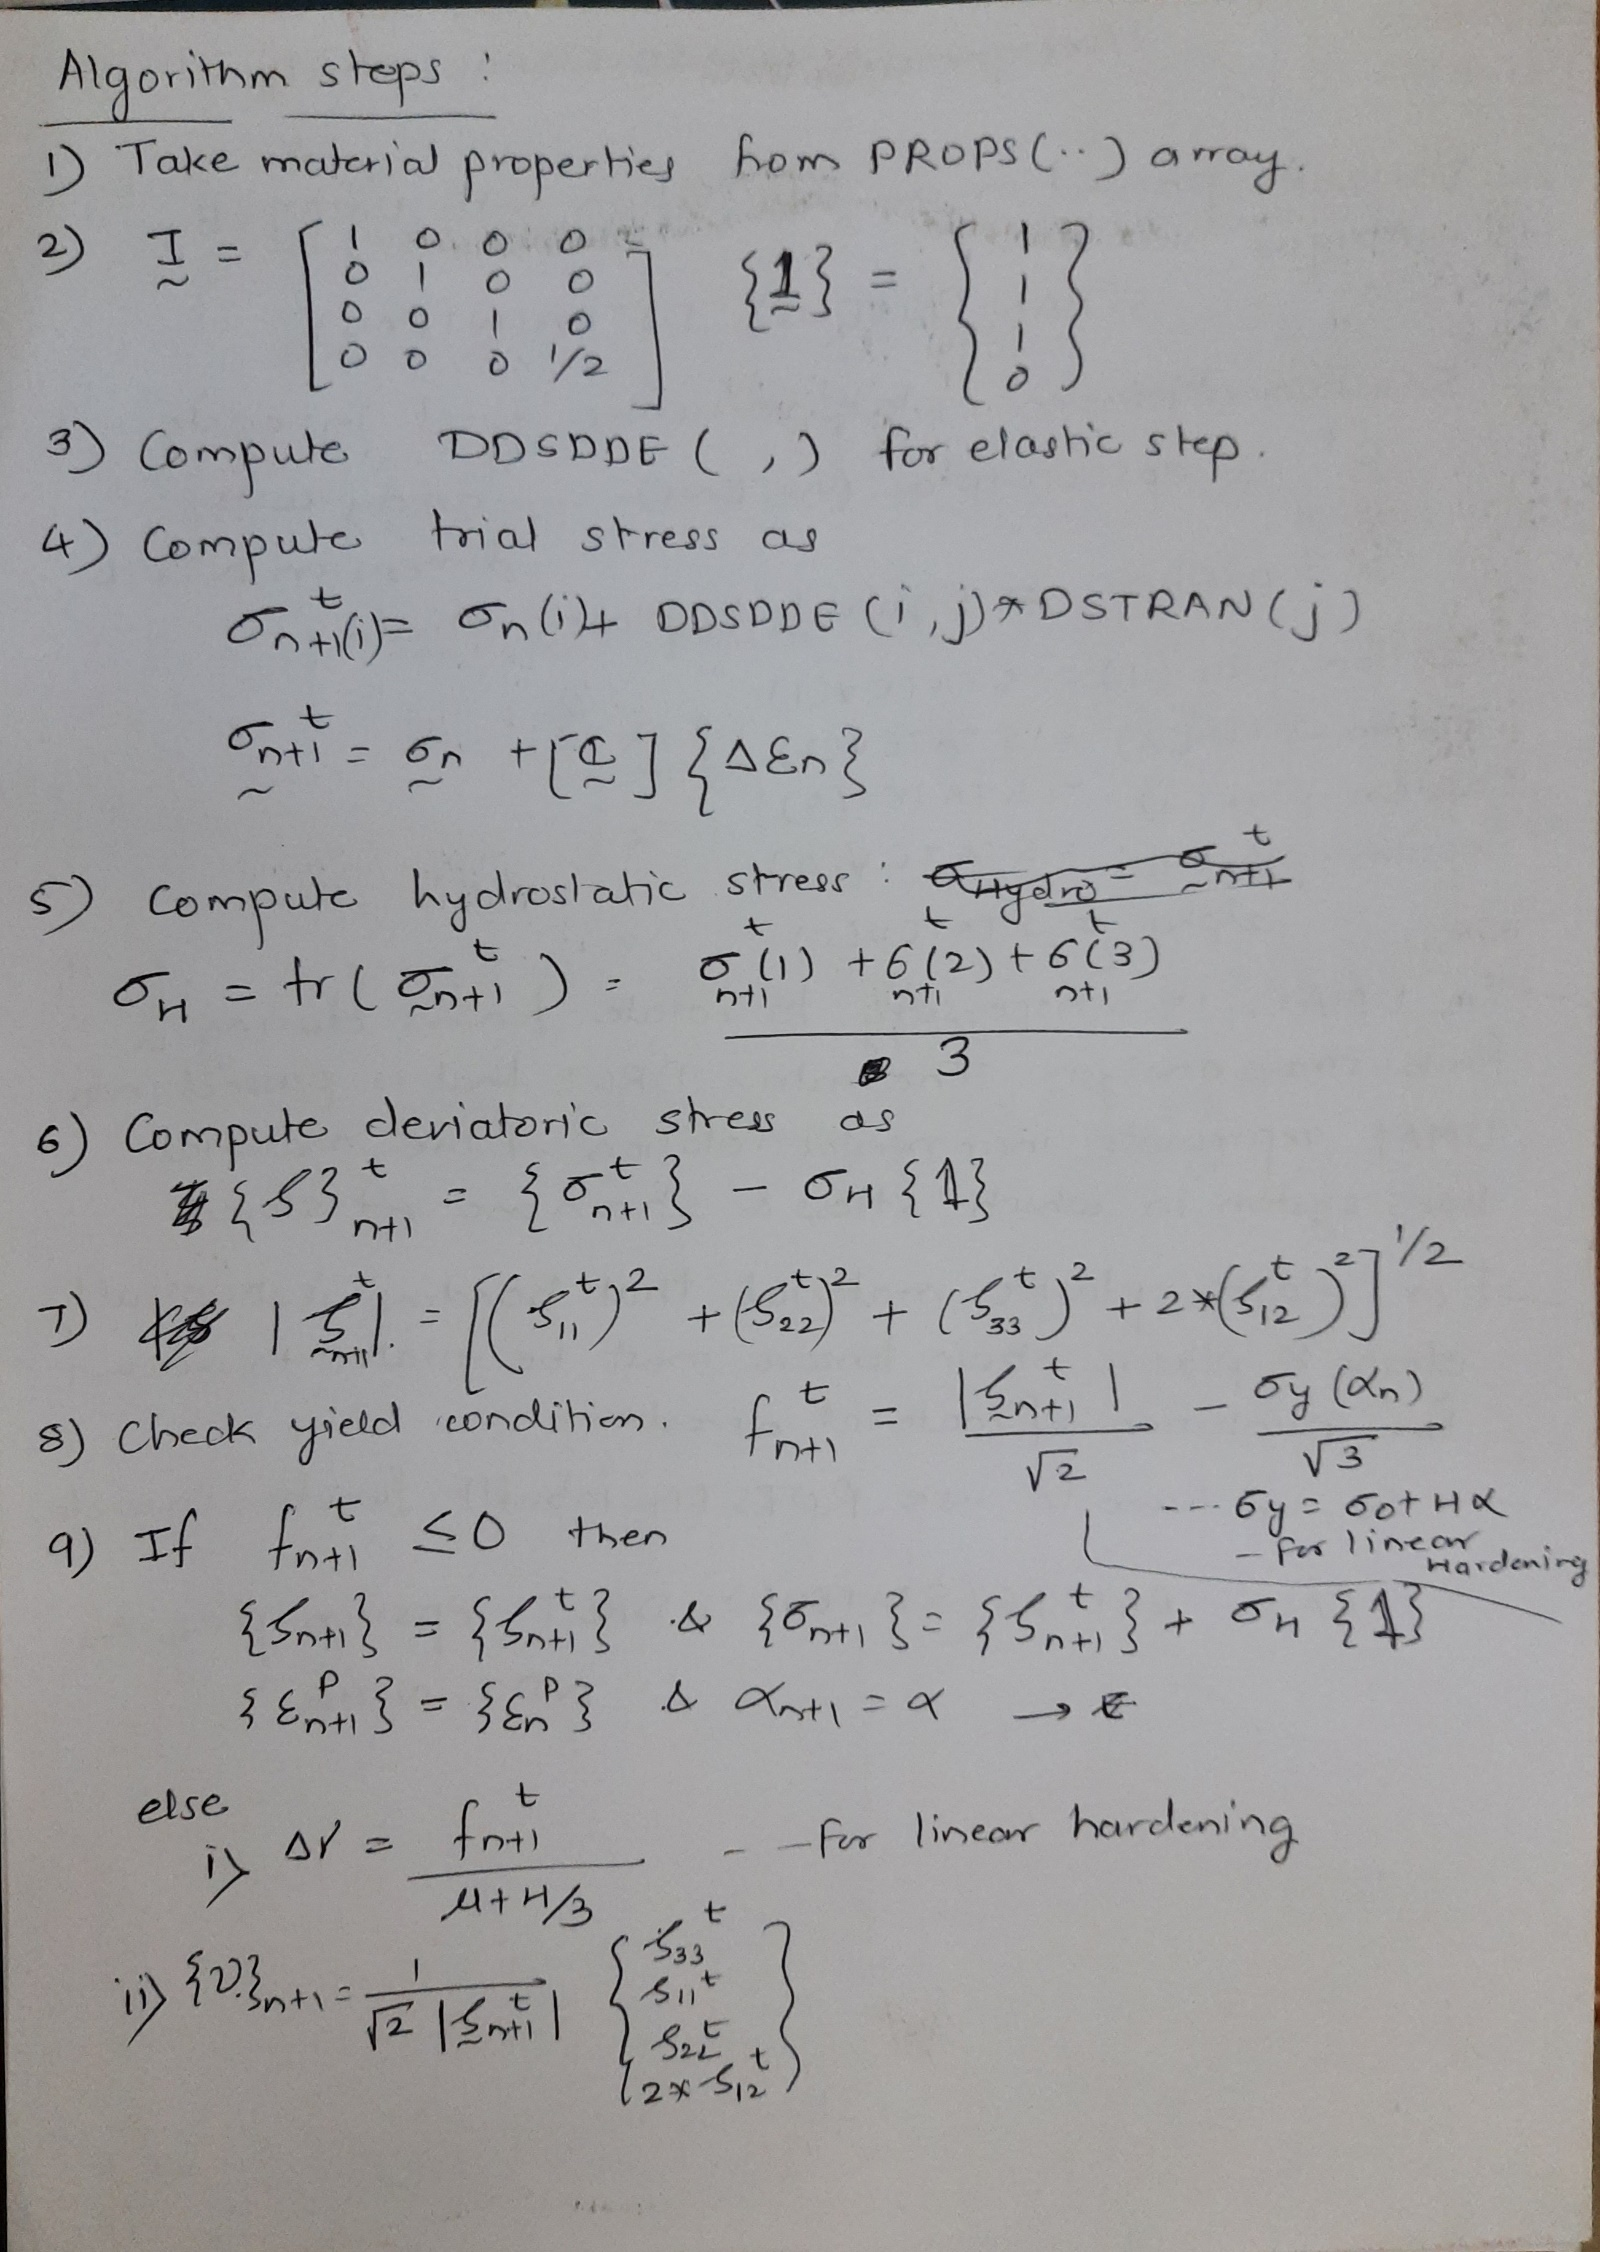 Algorithm steps :
1) Take material properties from PROPS(..) array.
2) I = [1 0 0 0; 0 1 0 0; 0 0 1 0; 0 0 0 1/2] {1} = {1 1 1 0}
3) Compute DDSDDE ( , ) for elastic step.
4) Compute trial stress as
σ^t_{n+1}(i) = σn(i) + DDSDDE (i,j)*DSTRAN(j)
σ^t_{n+1} = σn + [C] {Δεn}
5) Compute hydrostatic stress : σHydro = σ^t_{n+1}
σH = tr(σ^t_{n+1}) = (σ^t_{n+1}(1) + σ^t_{n+1}(2) + σ^t_{n+1}(3)) / 3
6) Compute deviatoric stress as
{S}^t_{n+1} = {σ^t_{n+1}} - σH {1}
7) |S^t_{n+1}| = [(S^t_11)^2 + (S^t_22)^2 + (S^t_33)^2 + 2*(S^t_12)^2]^{1/2}
8) Check yield condition. f^t_{n+1} = |S^t_{n+1}| / √2 - σy(αn) / √3
--- σy = σ0 + Hα
- for linear Hardening
9) If f^t_{n+1} ≤ 0 then
{S_{n+1}} = {S^t_{n+1}} & {σ_{n+1}} = {S^t_{n+1}} + σH {1}
{ε^P_{n+1}} = {ε^P_n} & α_{n+1} = α →
else
i) Δγ = f^t_{n+1} / (μ + H/3) - - for linear hardening
ii) {ν}_{n+1} = 1 / (√2 |S^t_{n+1}|) {S33^t S11^t S22^t 2*S12^t}